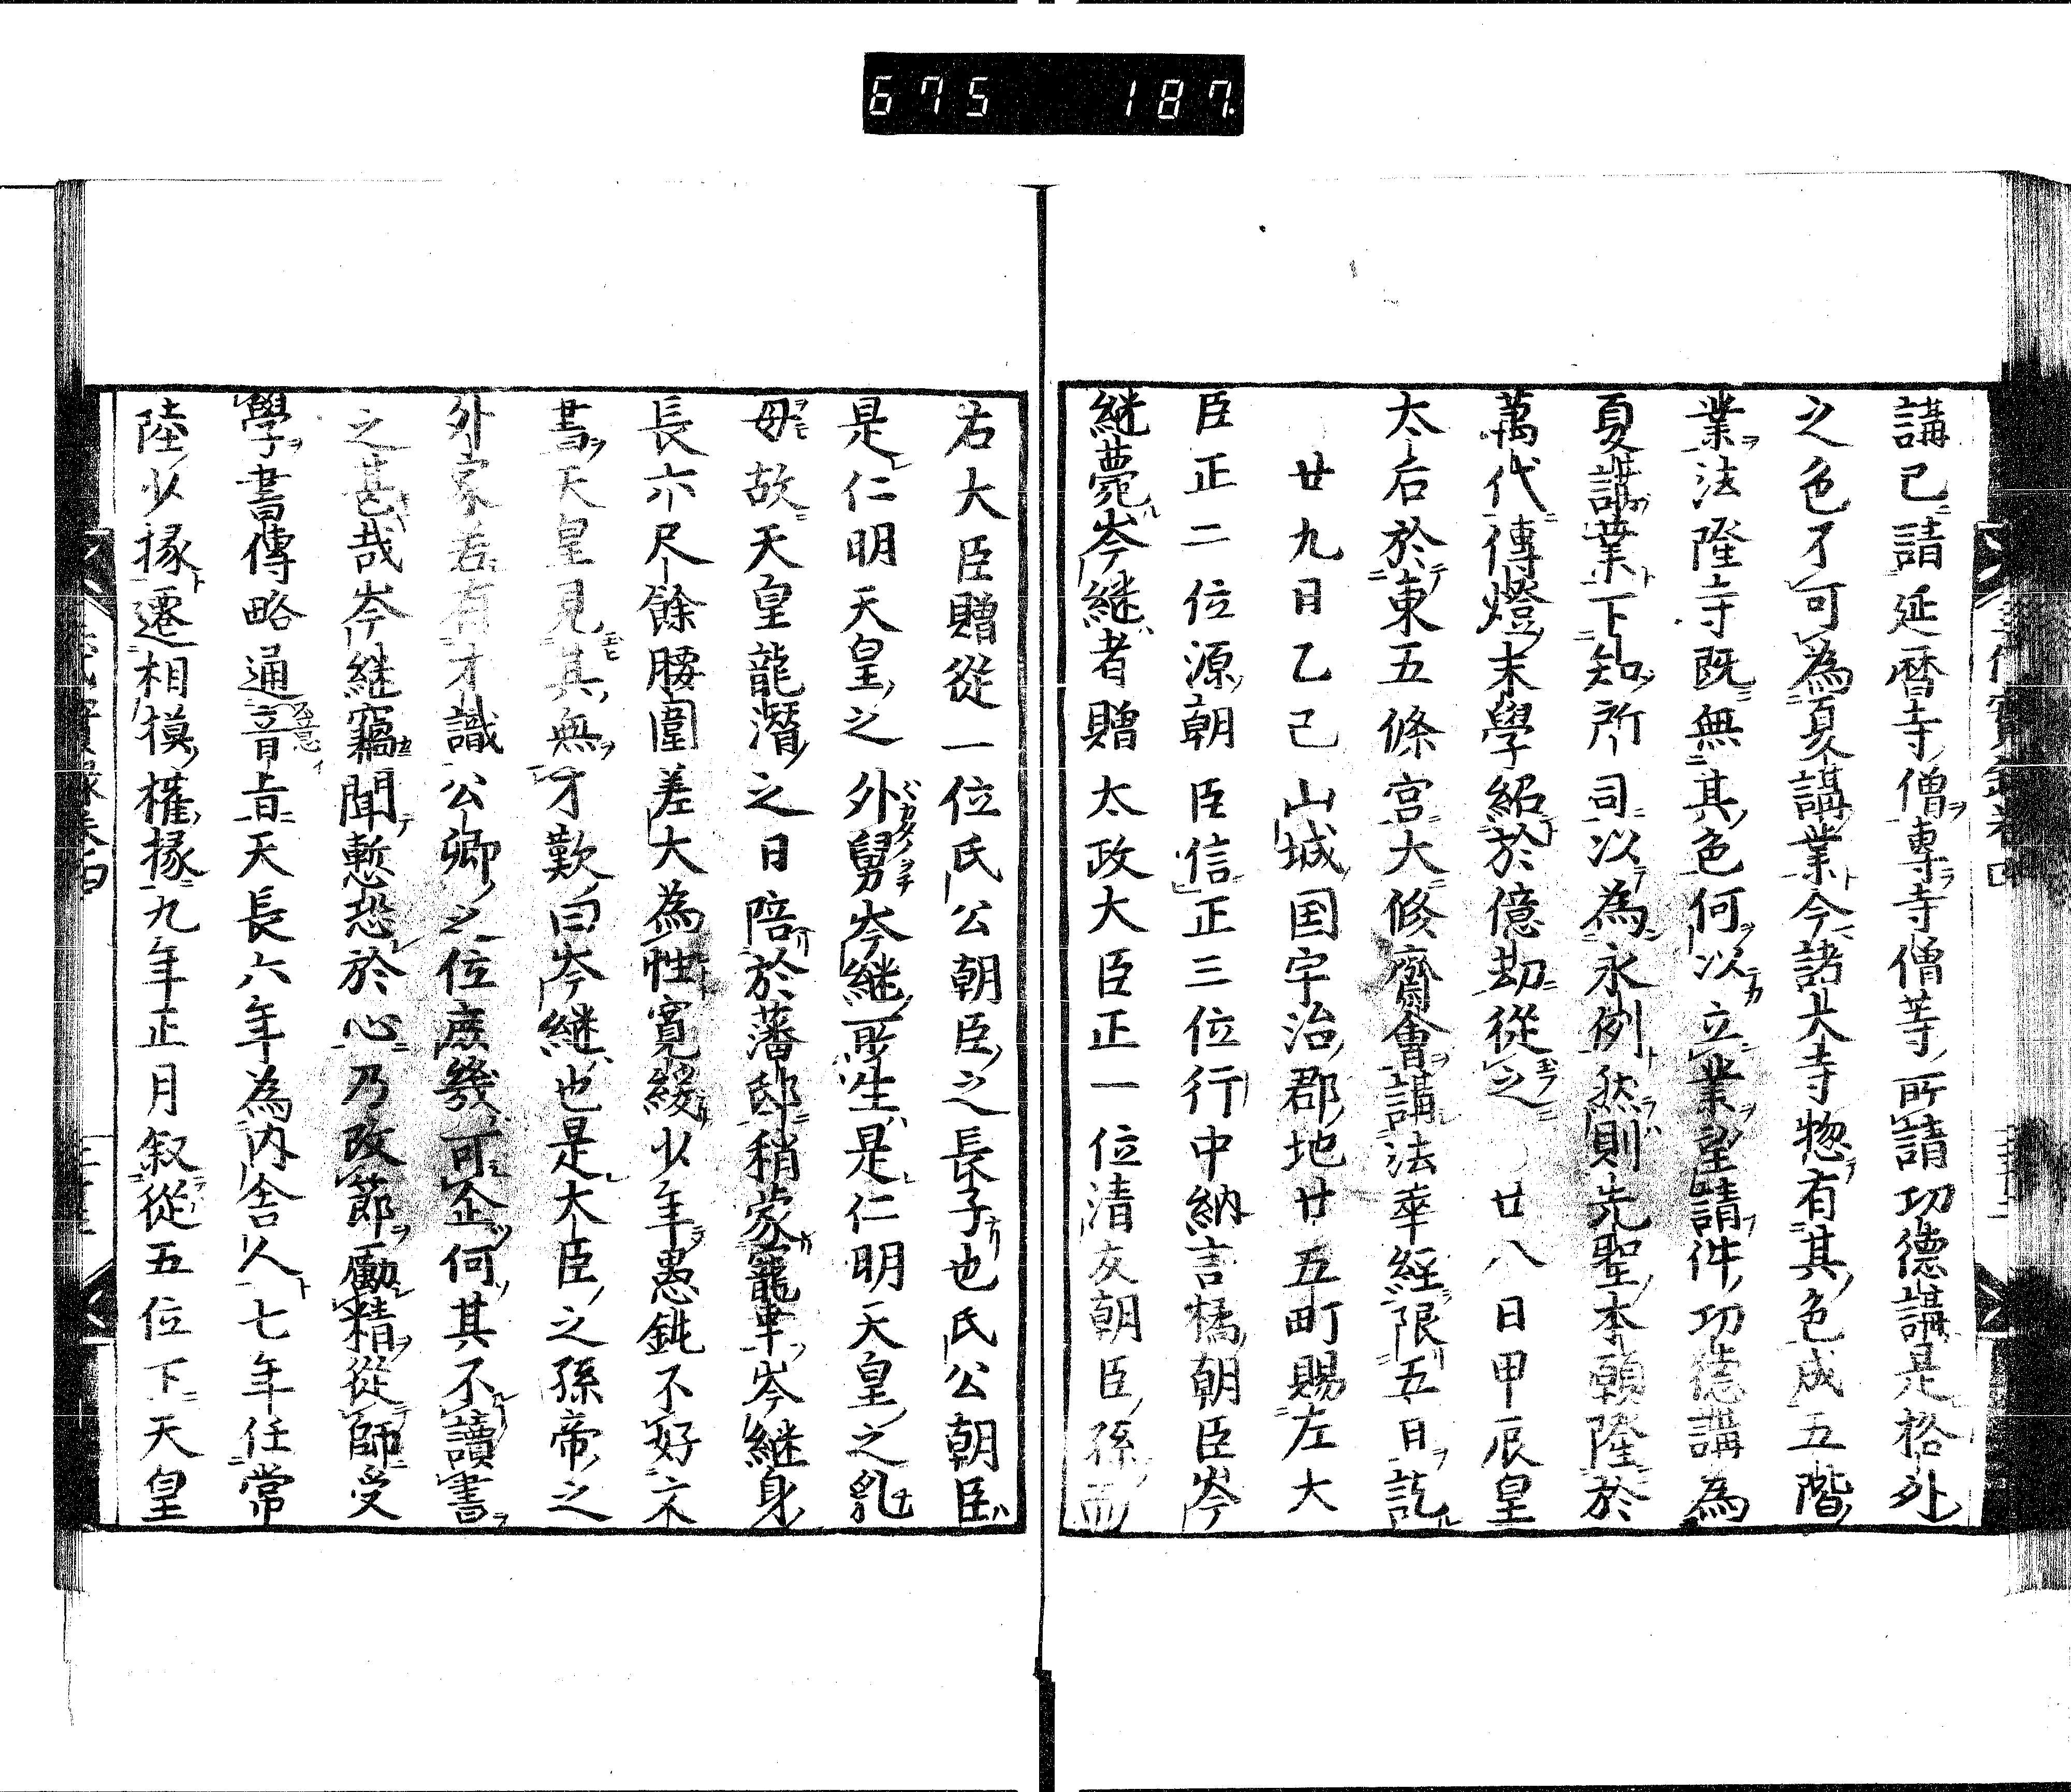 675 187
講已請延暦寺僧專寺僧等所請功德講是格外
之色不可為夏講業今諸大寺惣有其色成五階
業法隆寺既無其色何以立業望請件功德講為
夏講業下知所司以為永例然則先聖本願隆於
萬代傳燈末學紹於億劫從之 廿八日甲辰皇
太后於東五條宮大修齋會講法華經限五日訖
廿九日乙已山城国宇治郡地廿五町賜左大
臣正二位源朝臣信正三位行中納言橘朝臣岑
継薨岑継者贈太政大臣正一位清友朝臣孫而
右大臣贈從一位氏公朝臣之長子也氏公朝臣
是仁明天皇之外舅岑継所生是仁明天皇之乳
母故天皇龍潛之日陪於藩邸稍蒙寵幸岑継身
長六尺餘腰圍差大為性寬緩少年愚鈍不好文
書天皇見其無才歎曰岑継也是大臣之孫帝之
外家若有才識公卿之位庶幾可企何其不讀書
之甚哉岑継竊聞慙恐於心乃改節勵精從師受
學書傳略通音旨天長六年為内舍人七年任常
陸少掾遷相摸權掾九年正月叙從五位下天皇